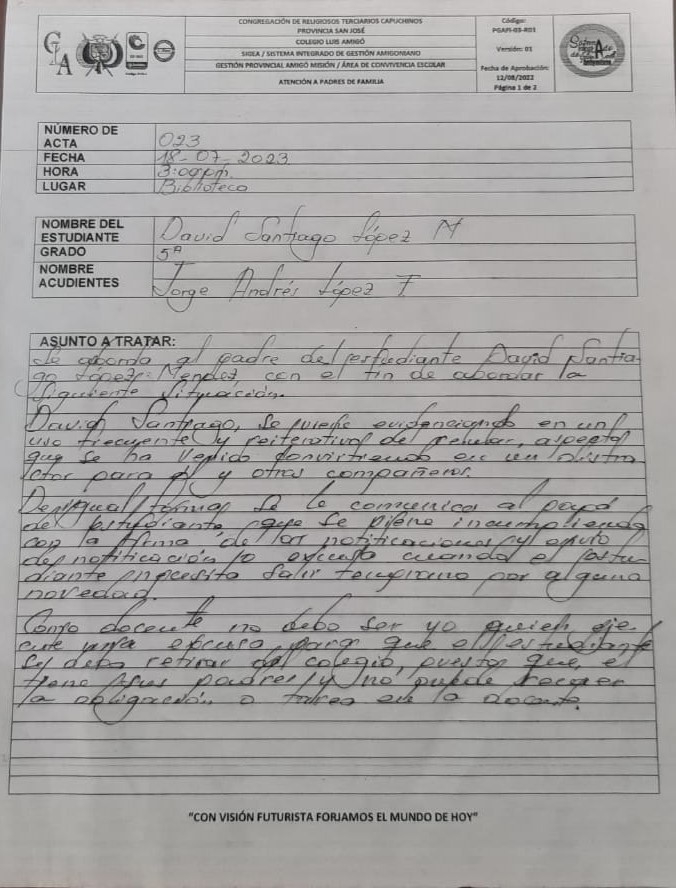 CONGREGACIÓN DE RELIGIOSOS TERCIARIOS CAPUCHINOS
PROVINCIA SAN JOSÉ
COLEGIO LUIS AMIGÓ
SIGEA / SISTEMA INTEGRADO DE GESTIÓN AMIGONIANO
GESTIÓN PROVINCIAL AMIGÓ MISIÓN / ÁREA DE CONVIVENCIA ESCOLAR
ATENCIÓN A PADRES DE FAMILIA
Código:
PGAPI-03-R03
Versión: 01
Fecha de Aprobación:
12/08/2022
Página 1 de 2
NÚMERO DE ACTA 023
FECHA 18-07-2023
HORA 3:00 pm.
LUGAR Biblioteca
NOMBRE DEL ESTUDIANTE David Santiago López M
GRADO 5ª
NOMBRE ACUDIENTES Jorge Andrés López F
ASUNTO A TRATAR:
Se aborda al padre del estudiante David Santia-
go López Mendez, con el fin de abordar la
siguiente situación.
David Santiago, se viene evidenciando en un
uso frecuente y reiterativo del celular, aspecto
que se ha venido convirtiendo en un distra
ctor para él y otros compañeros.
De igual forma se le comunica al papá
del estudiante que se viene incumpliendo
con la firma de las notificaciones y envío
de notificación o excusa cuando el estu-
diante necesita salir temprano por alguna
novedad.
Como docente no debo ser yo quien eje
cute una excusa para que el estudiante
se deba retirar del colegio, puesto que, el
tiene sus padres y no puede recaer
la obligación o tarea en la docente.
"CON VISIÓN FUTURISTA FORJAMOS EL MUNDO DE HOY"